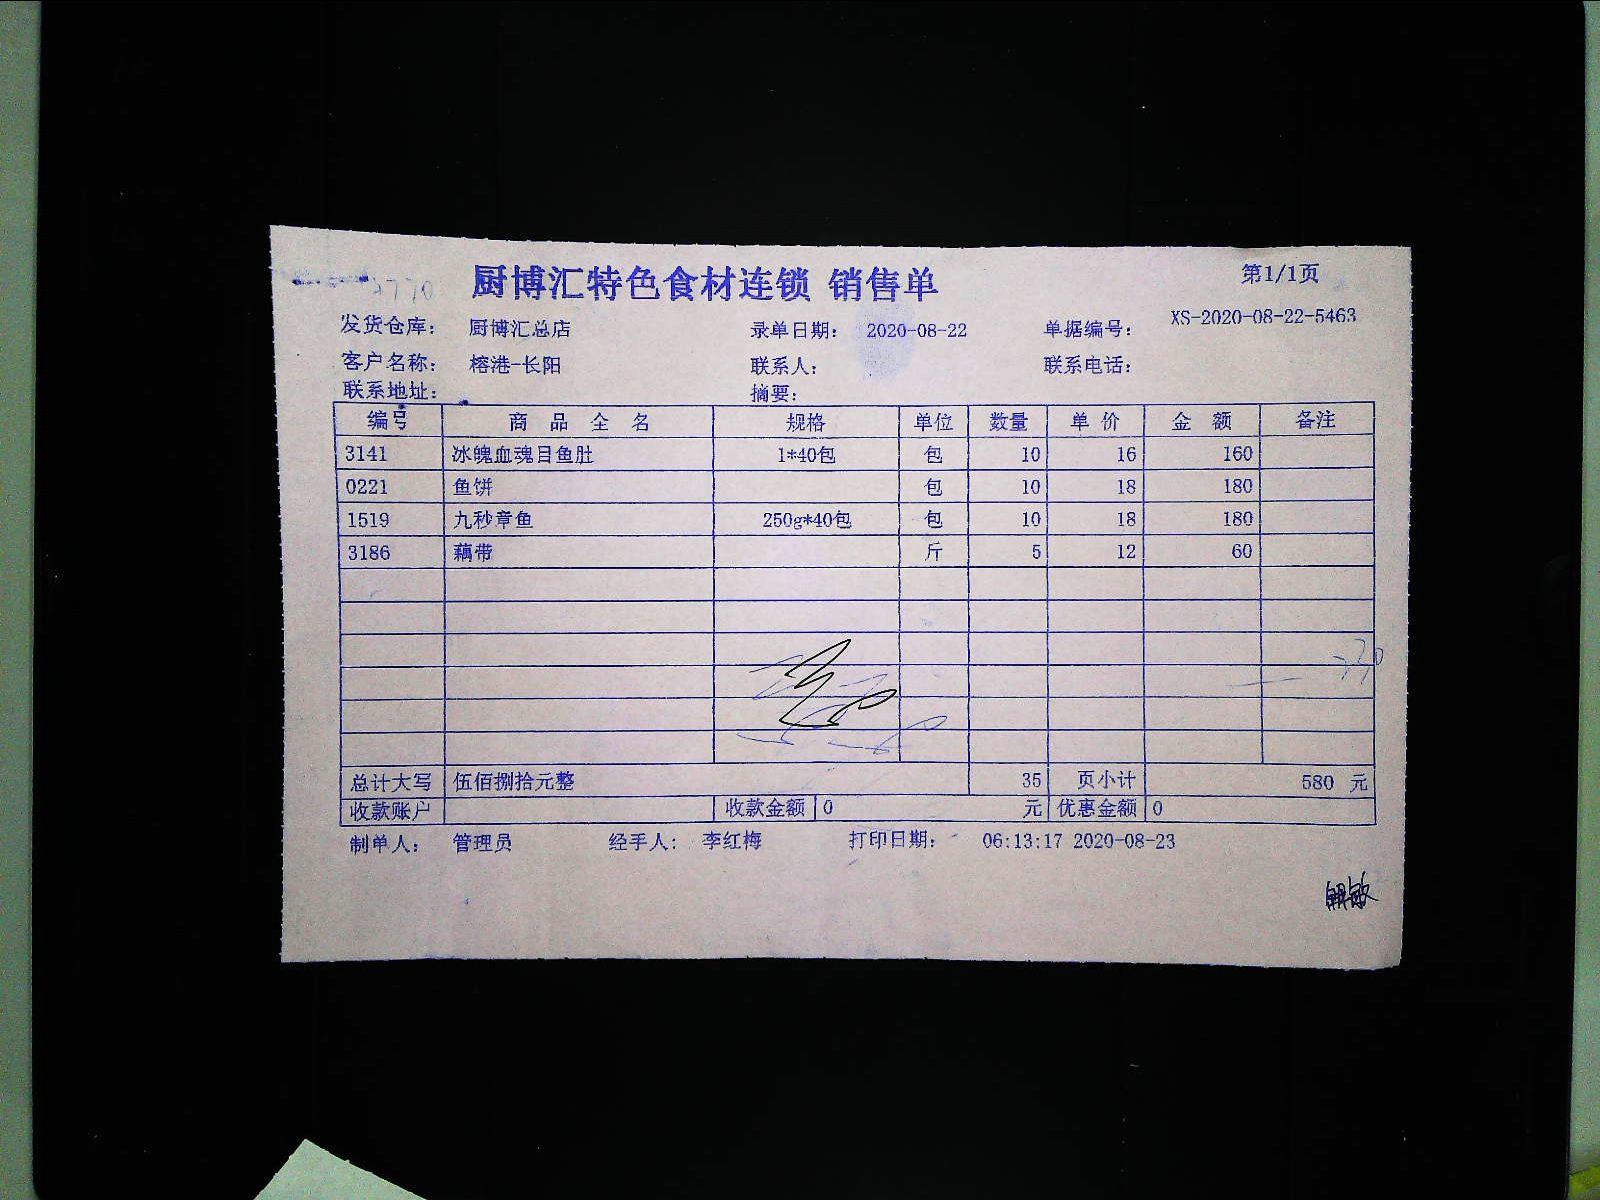 厨博汇特色食材连锁 销售单 第1/1页
发货仓库： 厨博汇总店 录单日期： 2020-08-22 单据编号： XS-2020-08-22-5463
客户名称： 榕港-长阳 联系人： 联系电话：
联系地址： 摘要：
编号 商品全名 规格 单位 数量 单价 金额 备注
3141 冰魄血魂目鱼肚 1*40包 包 10 16 160
0221 鱼饼 包 10 18 180
1519 九秒章鱼 250g*40包 包 10 18 180
3186 藕带 斤 5 12 60
总计大写 伍佰捌拾元整 35 页小计 580 元
收款账户 收款金额 0 元 优惠金额 0
制单人： 管理员 经手人： 李红梅 打印日期： 06:13:17 2020-08-23